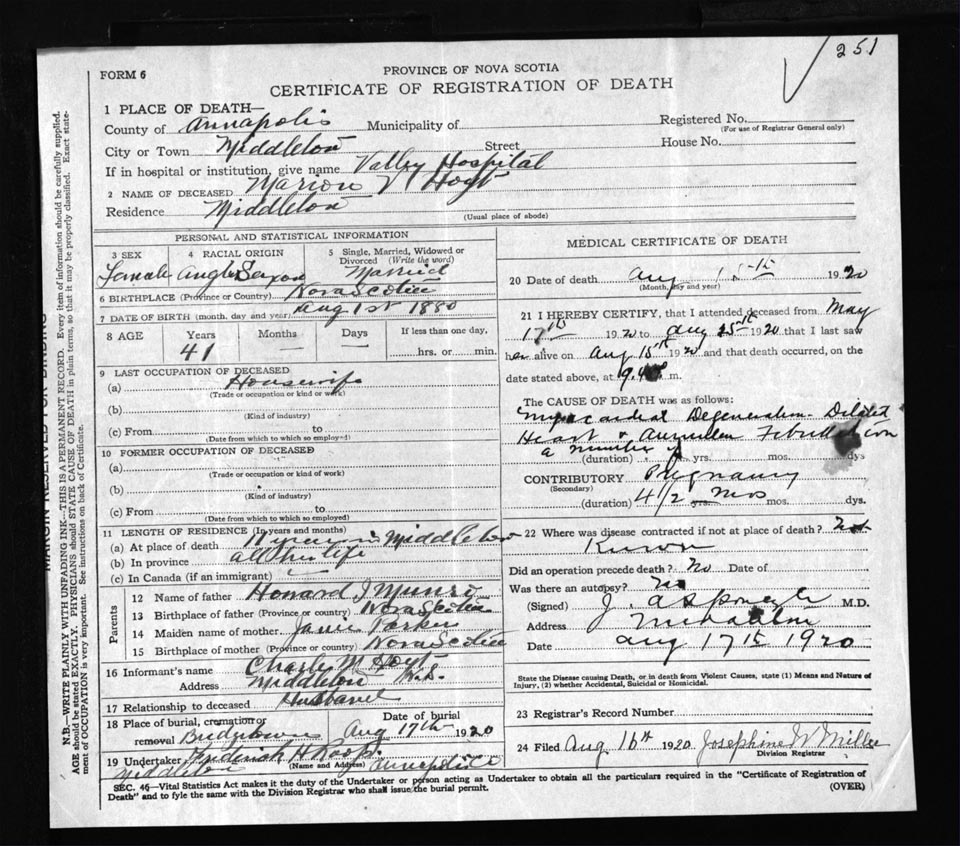 251
FORM 6
PROVINCE OF NOVA SCOTIA
CERTIFICATE OF REGISTRATION OF DEATH
1 PLACE OF DEATH—
County of Annapolis Municipality of Registered No.
(For use of Registrar General only)
City or Town Middleton Street House No.
If in hospital or institution, give name Valley Hospital
2 NAME OF DECEASED Marion V Hoyt
Residence Middleton
(Usual place of abode)
PERSONAL AND STATISTICAL INFORMATION
3 SEX 4 RACIAL ORIGIN 5 Single, Married, Widowed or Divorced (Write the word)
Female Anglo Saxon Married
6 BIRTHPLACE (Province or Country) Nova Scotia
7 DATE OF BIRTH (month, day and year) Aug 1st 1880
8 AGE Years Months Days If less than one day,
41 — — hrs. or min.
9 LAST OCCUPATION OF DECEASED
(a) Housewife
(Trade or occupation or kind or work)
(b)
(Kind of industry)
(c) From to
(Date from which to which so employed)
10 FORMER OCCUPATION OF DECEASED
(a)
(Trade or occupation or kind of work)
(b)
(Kind of industry)
(c) From to
(Date from which to which so employed)
11 LENGTH OF RESIDENCE (In years and months)
(a) At place of death Middleton
(b) In province all her life
(c) In Canada (if an immigrant)
Parents
12 Name of father Howard J Munro
13 Birthplace of father (Province or country) Nova Scotia
14 Maiden name of mother Janie Parker
15 Birthplace of mother (Province or country) Nova Scotia
16 Informant's name Charly M Hoyt
Address Middleton N.S.
17 Relationship to deceased Husband
18 Place of burial, cremation or removal Bridgetown Date of burial Aug 17th 1920
19 Undertaker Frederick H Roop
(Name and Address)
Middleton Annapolis
MEDICAL CERTIFICATE OF DEATH
20 Date of death Aug 15th 1920
(Month, day and year)
21 I HEREBY CERTIFY, that I attended deceased from May
17th 1920 to Aug 15th 1920 that I last saw
her alive on Aug 15th 1920 and that death occurred, on the
date stated above, at 9.4 m.
The CAUSE OF DEATH was as follows:
Myocardial Degeneration Dilated
Heart & Auricular Fibrillation
a number of
(duration) yrs. mos. dys
CONTRIBUTORY Pregnancy
(Secondary)
(duration) 4 1/2 mos yrs. mos. dys.
22 Where was disease contracted if not at place of death? Not
Known
Did an operation precede death? No Date of
Was there an autopsy? No
(Signed) J. A Sponagle M.D.
Address Middleton
Date Aug 17th 1920
State the Disease causing Death, or in death from Violent Causes, state (1) Means and Nature of
Injury, (2) whether Accidental, Suicidal or Homicidal.
23 Registrar's Record Number
24 Filed Aug. 16th 1920 Josephine W Miller
Division Registrar
SEC. 46—Vital Statistics Act makes it the duty of the Undertaker or person acting as Undertaker to obtain all the particulars required in the "Certificate of Registration of
Death" and to fyle the same with the Division Registrar who shall issue the burial permit.
(OVER)
MARGIN RESERVED FOR BINDING
N.B.—WRITE PLAINLY WITH UNFADING INK—THIS IS A PERMANENT RECORD. Every item of information should be carefully supplied.
AGE should be stated EXACTLY. PHYSICIANS should STATE CAUSE OF DEATH in plain terms, so that it may be properly classified. Exact state-
ment of OCCUPATION is very important. See instructions on back of Certificate.